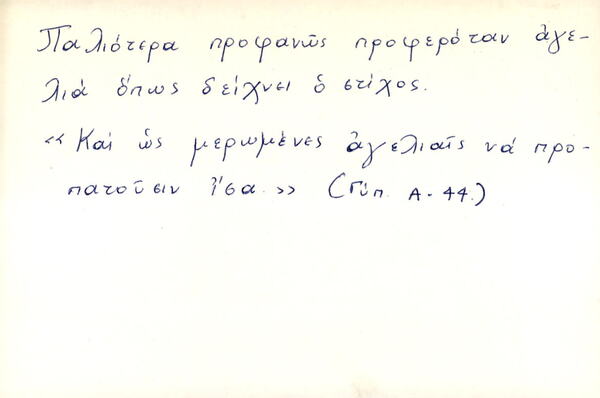 Παλιότερα προφανῶς προφερόταν ἀγε-
λιά ὅπως δείχνει ὁ στίχος.
«Καί ὡς μερωμένες ἀγελιαῖς νά προ-
πατοῦσιν ἴσα.» (Γύπ. Α-44.)